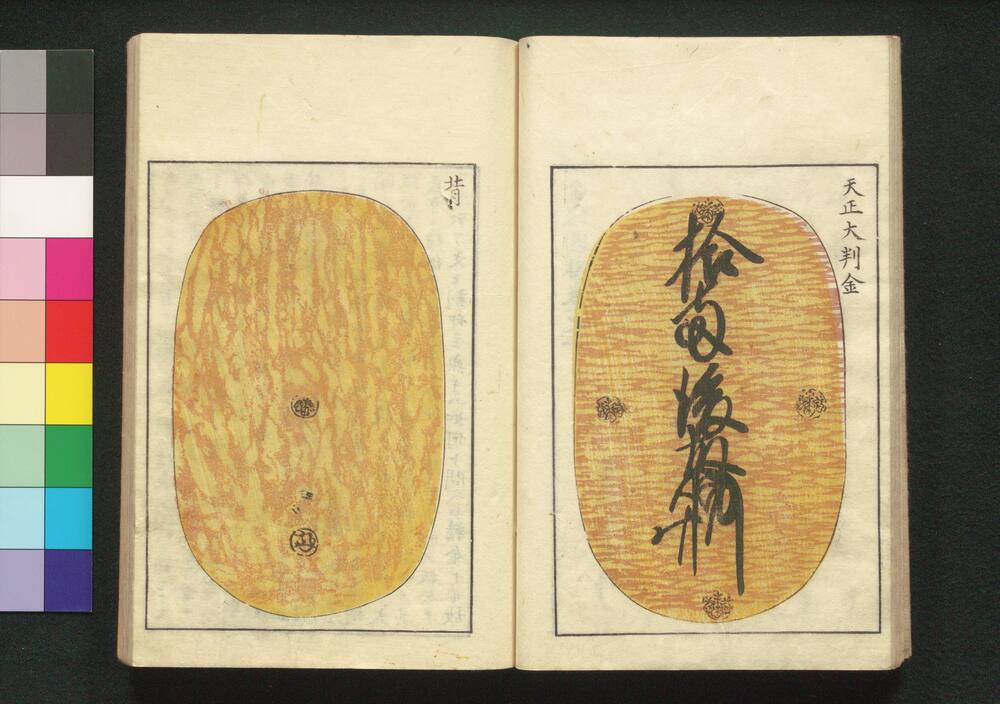 天正大判金
拾両後藤
背